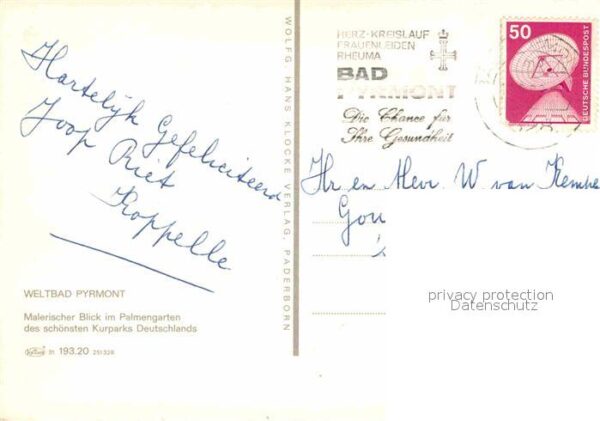 Hartelijk Gefeliciteerd
Joop Riet
Koppelle
WELTBAD PYRMONT
Malerischer Blick im Palmengarten
des schönsten Kurparks Deutschlands
31 193.20 251328
WOLFG. HANS KLOCKE VERLAG, PADERBORN
HERZ-KREISLAUF
FRAUENLEIDEN
RHEUMA
BAD
PYRMONT
Die Chance für
Ihre Gesundheit
50
DEUTSCHE BUNDESPOST
Hr en Mevr. W van
Gou
privacy protection
Datenschutz